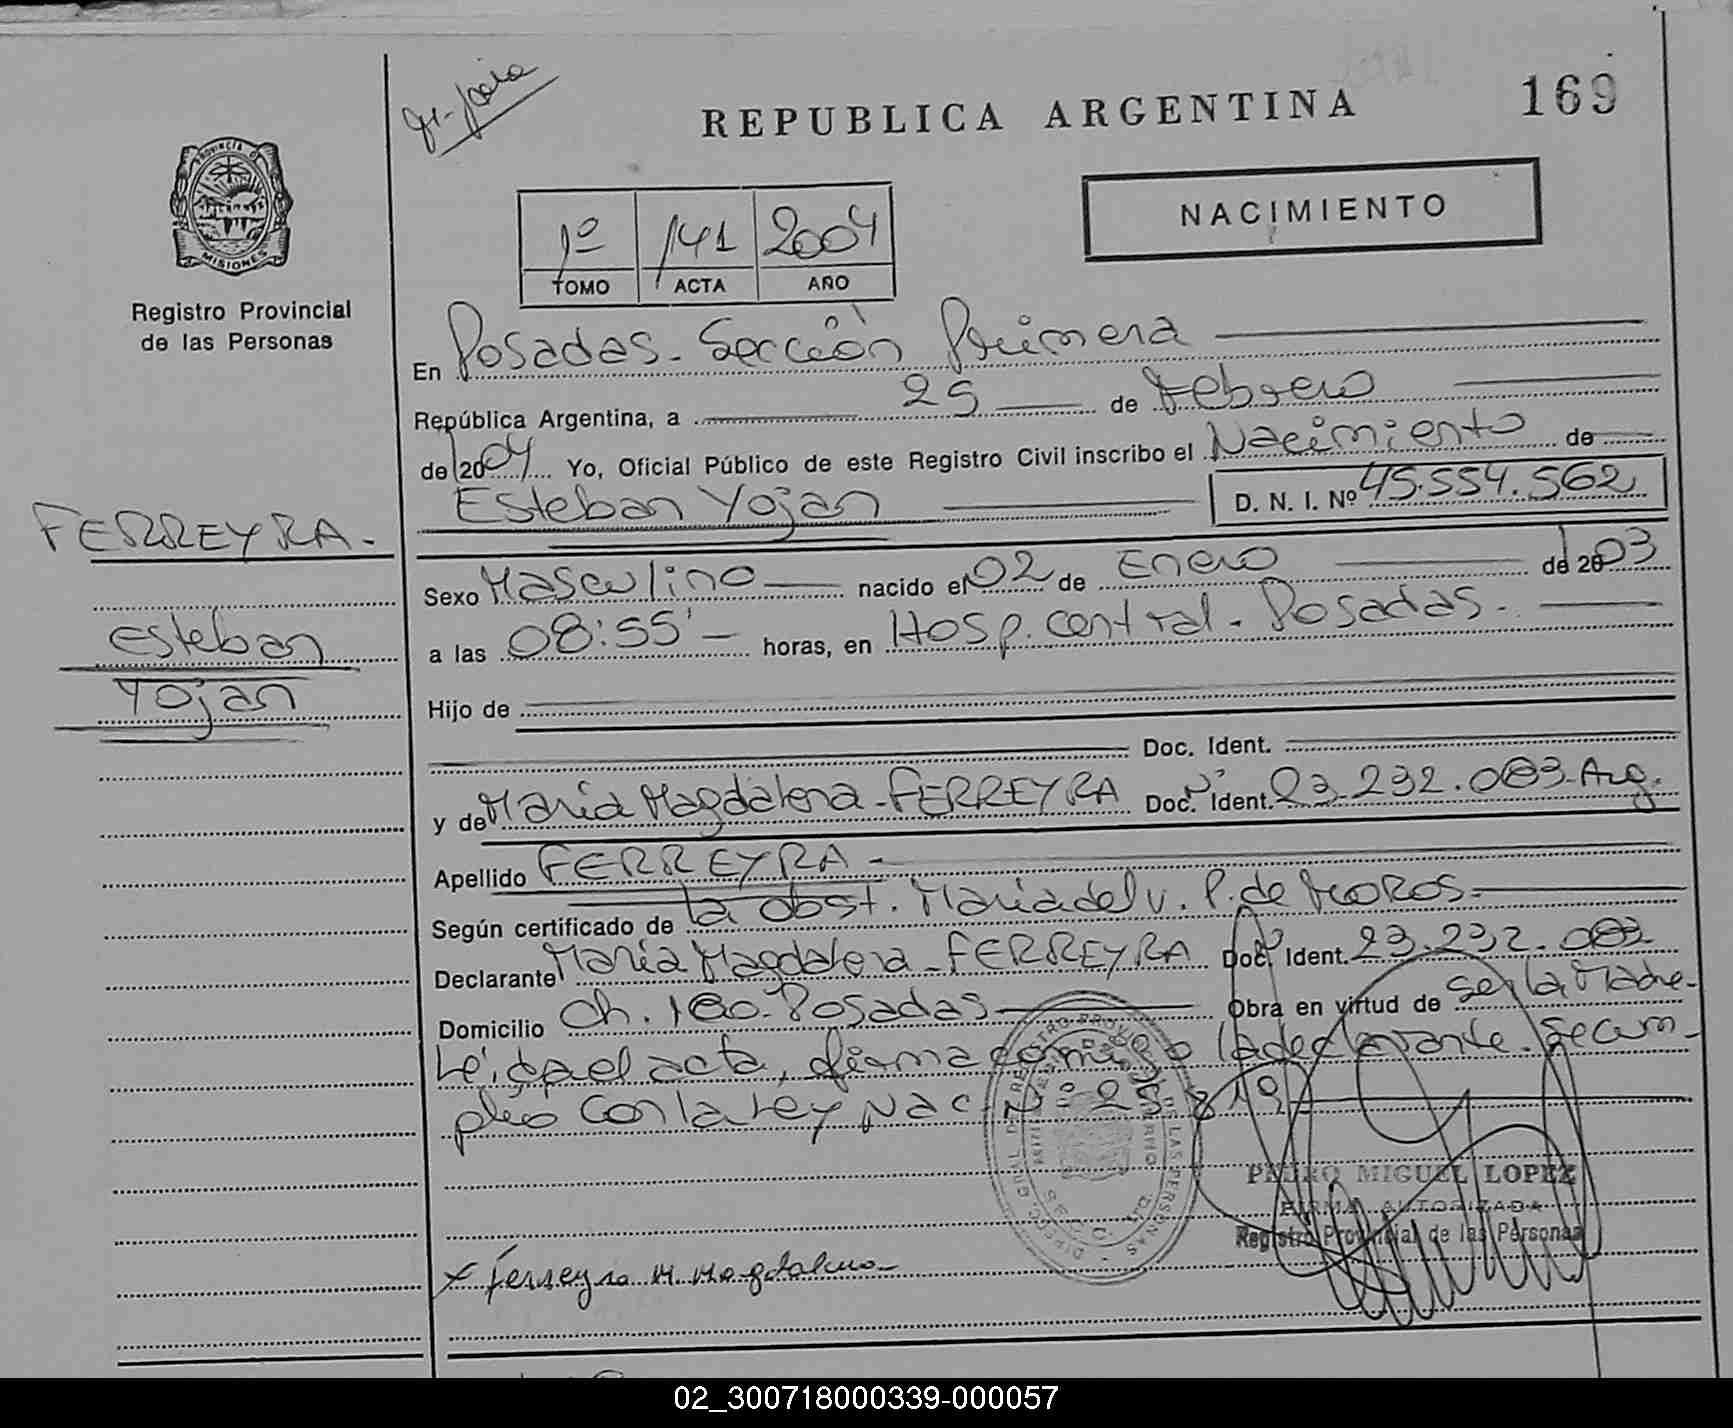 REPUBLICA ARGENTINA
169
PROVINCIA DE
MISIONES
Registro Provincial
de las Personas
1º 141 2004
TOMO ACTA AÑO
NACIMIENTO
En Posadas - Sección Primera
República Argentina, a 25 de Febrero
de 2004 Yo, Oficial Público de este Registro Civil inscribo el Nacimiento de
Esteban Yojan D. N. I. Nº 45.554.562
FERREYRA.
Esteban
Yojan
Sexo Masculino nacido el 02 de Enero de 2003
a las 08:55' horas, en Hosp. Central - Posadas.
Hijo de
Doc. Ident.
y de María Magdalena - FERREYRA Doc. Ident. Nº 23.232.083 - Arg.
Apellido FERREYRA -
Según certificado de la obst. María del v. P. de
Declarante María Magdalena - FERREYRA Doc. Ident. Nº 23.232.083
Domicilio Ch. 180 - Posadas Obra en virtud de ser la Madre -
Leída el acta, firma conmigo la declarante. Se cum-
plió con la Ley Nac. Nº 25.819
PEDRO MIGUEL LOPEZ
FIRMA AUTORIZADA
Registro Provincial de las Personas
x Ferreyra M. Magdalena
02_300718000339-000057